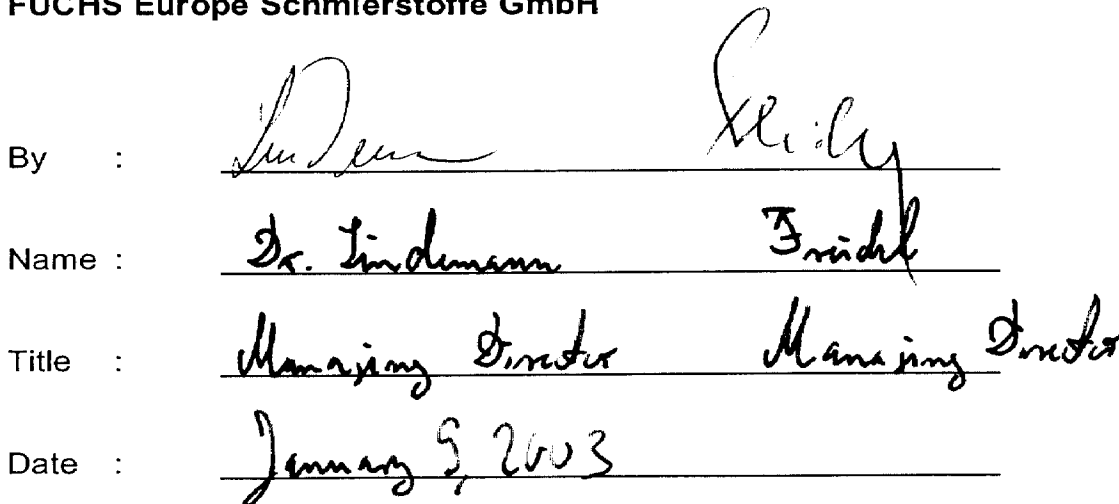 FUCHS Europe Schmierstoffe GmbH
By :
Name : Dr. Lindemann Freidel
Title : Managing Director Managing Director
Date : January 9, 2003